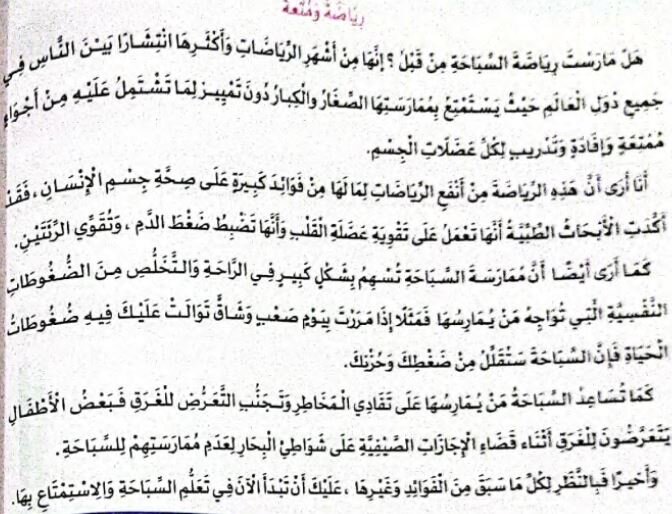 رِيَاضَةٌ وَمُتْعَةٌ
هَلْ مَارَسْتَ رِيَاضَةَ السِّبَاحَةِ مِنْ قَبْلُ ؟ إِنَّهَا مِنْ أَشْهَرِ الرِّيَاضَاتِ وَأَكْثَرِهَا انْتِشَارًا بَيْنَ النَّاسِ فِي
جَمِيعِ دُوَلِ الْعَالَمِ حَيْثُ يَسْتَمْتِعُ بِمُمَارَسَتِهَا الصِّغَارُ وَالْكِبَارُ دُونَ تَمْيِيزٍ لِمَا تَشْتَمِلُ عَلَيْهِ مِنْ أَجْوَاءٍ
مُمْتَعَةٍ وَإِفَادَةٍ وَتَدْرِيبٍ لِكُلِّ عَضَلَاتِ الْجِسْمِ.
أَنَا أَرَى أَنَّ هَذِهِ الرِّيَاضَةَ مِنْ أَنْفَعِ الرِّيَاضَاتِ لِمَا لَهَا مِنْ فَوَائِدَ كَبِيرَةٍ عَلَى صِحَّةِ جِسْمِ الْإِنْسَانِ ، فَقَدْ
أَكَّدَتِ الْأَبْحَاثُ الطِّبِّيَّةُ أَنَّهَا تَعْمَلُ عَلَى تَقْوِيَةِ عَضَلَةِ الْقَلْبِ وَأَنَّهَا تَضْبِطُ ضَغْطَ الدَّمِ ، وَتُقَوِّي الرِّئَتَيْنِ.
كَمَا أَرَى أَيْضًا أَنَّ مُمَارَسَةَ السِّبَاحَةِ تُسْهِمُ بِشَكْلٍ كَبِيرٍ فِي الرَّاحَةِ وَالتَّخَلُّصِ مِنَ الضُّغُوطَاتِ
النَّفْسِيَّةِ الَّتِي تُوَاجِهُ مَنْ يُمَارِسُهَا فَمَثَلًا إِذَا مَرَرْتَ بِيَوْمٍ صَعْبٍ وَشَاقٍّ تَوَالَتْ عَلَيْكَ فِيهِ ضُغُوطَاتُ
الْحَيَاةِ فَإِنَّ السِّبَاحَةَ سَتُقَلِّلُ مِنْ ضَغْطِكَ وَحُزْنِكَ.
كَمَا تُسَاعِدُ السِّبَاحَةُ مَنْ يُمَارِسُهَا عَلَى تَفَادِي الْمَخَاطِرِ وَتَجَنُّبِ التَّعَرُّضِ لِلْغَرَقِ فَبَعْضُ الْأَطْفَالِ
يَتَعَرَّضُونَ لِلْغَرَقِ أَثْنَاءَ قَضَاءِ الْإِجَازَاتِ الصَّيْفِيَّةِ عَلَى شَوَاطِئِ الْبِحَارِ لِعَدَمِ مُمَارَسَتِهِمْ لِلسِّبَاحَةِ.
وَأَخِيرًا فَبِالنَّظَرِ لِكُلِّ مَا سَبَقَ مِنَ الْفَوَائِدِ وَغَيْرِهَا ، عَلَيْكَ أَنْ تَبْدَأَ الْآنَ فِي تَعَلُّمِ السِّبَاحَةِ وَالِاسْتِمْتَاعِ بِهَا.